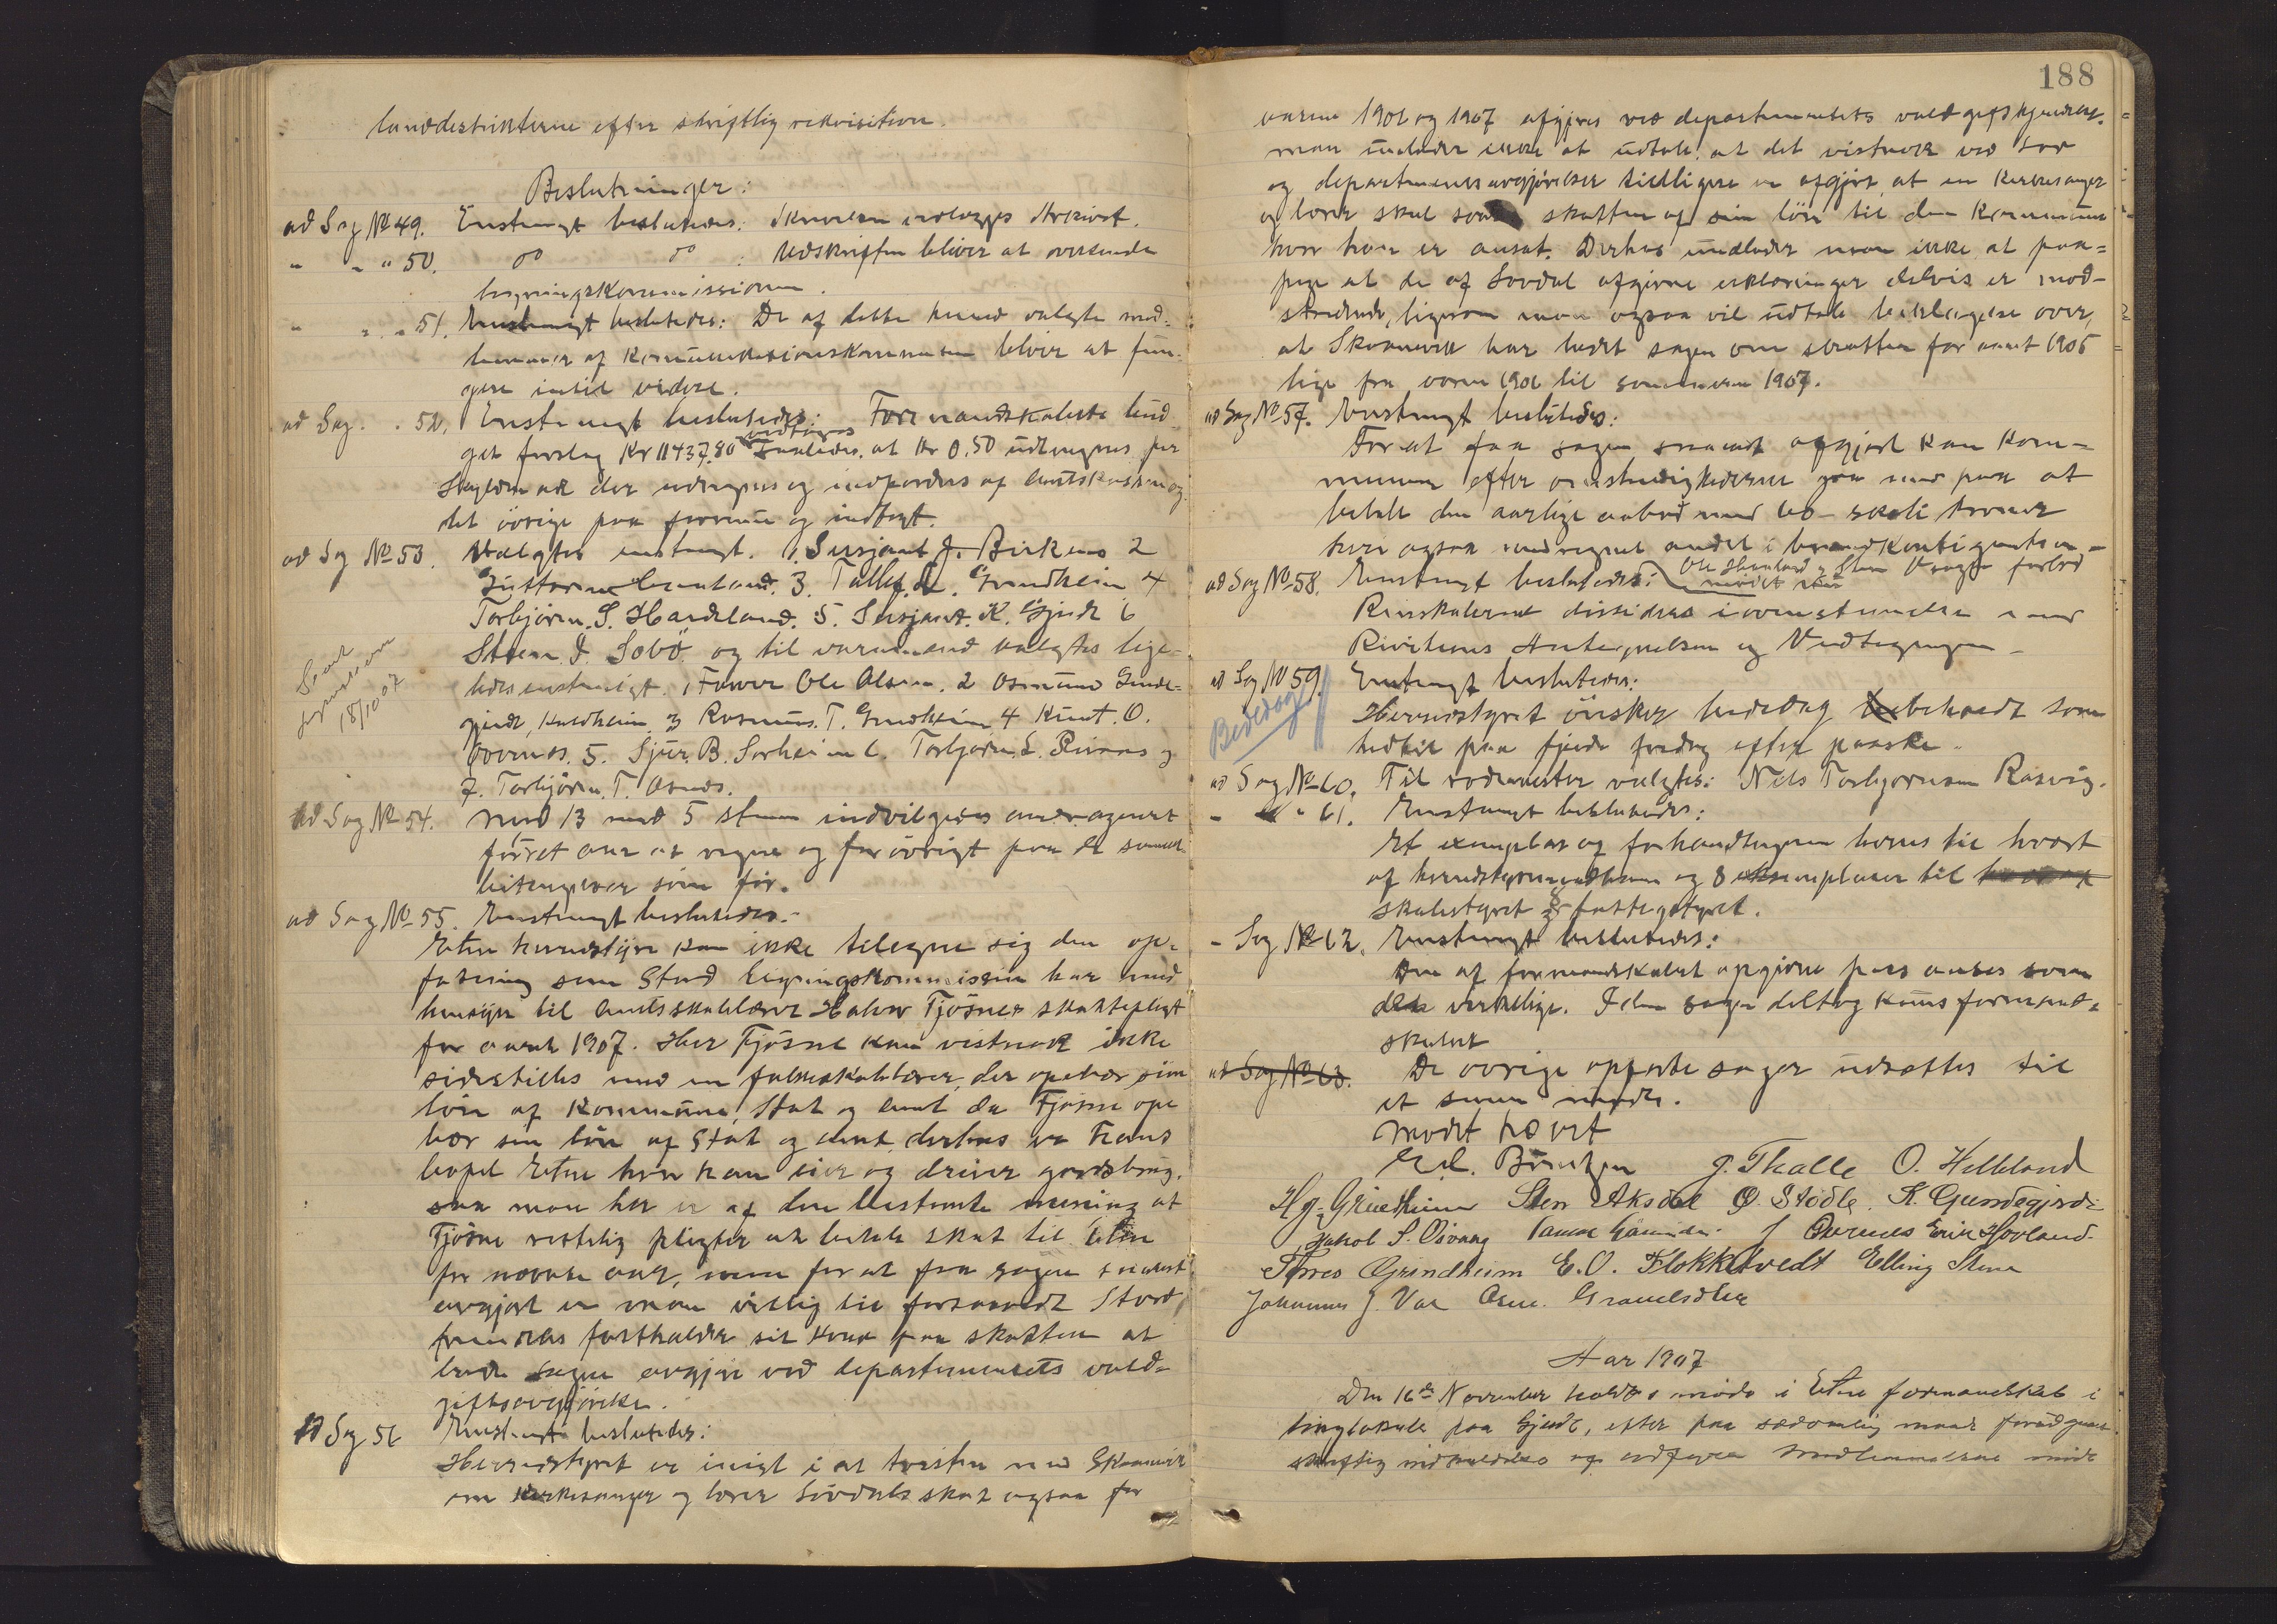 landdistrikterne efter skriftlig rekvisition.
Beslutninger:
ad Sag № 49. Enstemigt besluttedes: Skrivelsen indlægges Arkivet.
" " " 50. do do : Udskriften bliver at oversende
ligningskommissionen.
" " " 51. Enstemigt besluttedes: De af dette herred valgte med-
lemmer af Kommunikationskommisionen bliver at fun-
gere indtil videre.
ad Sag " 52. Enstemigt besluttedes: Formandskabets bud-
get forslag Kr 11437,80 vedtages saaledes, at Kr 0.50 udlignes per
Skyldmark der udlignes og indfordres af Amtskassen og
det övrige paa formue og indtægt.
ad Sag № 53. Valgtes enstemigt. 1. Sersjant J. Birknes 2
Guttorm 3. Talle 4
Torbjörn. S. Hardeland. 5. Sersjant. K. Gjerde 6
Steen J. Söbö og til varamænd valgtes lige-
ledes enstemigt. 1 Farver Ole Olsen. 2 Osmund Gunde-
gjerde, 3 Rasmus. T. Grindheim 4 Knut. O.
Övernes. 5. Sjur. B. Sörheim 6. Torbjörn. L. Rinnes og
7. Torbjörn. T. Osnes.
18/10 07
ad Sag № 54. Med 13 mod 5 stemmer indvilgedes andragendet
forövrigt paa de samme
betingelser som för.
ad Sag № 55. Enstemigt besluttedes.-
Etne herredstyre kan ikke tilegne sig den op-
fatning som Stord ligningskommission har med
hensyn til amtsskolelærer Halvor Fjösnes skattepligt
for aaret 1907. Herr Fjösne kan vistnok ikke
sidestilles med en folkeskolelærer, der opebær sin
lön af Kommune, Stat og amt da Fjösne ope
bær sin lön af Stat og amt, derhos er hans
bopæl Etne hvor han eier og driver gaardsbrug,
saa man her er af den bestemte mening at
Fjösne rettelig pligter at betale skat til Etne
for nævnte aar, men for at faa sagen snarest
avgjort er man villig til forsaavidt Stord
fremdeles fastholder sit krav paa skatten at
lade sagen avgjöre ved departementets vold-
giftsavgjörelse.
ad Sag 56 Enstemigt besluttedes:
Herredstyret er enigt i at tvisten med Skaanevik
om Kirkesanger og lærer Sövdals skat ogsaa for
188
aarene 1906 og 1907 afgjöres ved departementets voldgiftskjendelse.
Man undlader ikke at udtale, at det vistnok ved lov
og departementsavgjörelser tidligere er afgjort at en Kirkesanger
og lærer skal svare skatten af sin lön til den Kommune
hvor han er ansat. Derhos undlader man ikke at paa-
pege at de af Sövdal afgivne erklæringer delvis er mod-
stridende, ligesom man ogsaa vil udtale beklagelse over,
at Skaanevik har hedt sagen om skatten for aaret 1905
lige fra vaaren 1906 til sommeren 1907.
ad Sag № 57. Enstemigt besluttedes:
For at faa sagen snarest afgjort kan Kom-
munen efter omstendighederne gaa med paa at
betale den aarlige anbud med 60 - seksti kroner
heri ogsaa medregnet andel i brandkontigenten.-
ad Sag № 58. Enstemigt besluttedes:
Ole Hauland og Sten forlod
mödet
Renskaberne desideres i overenstemelse med
Revisions Antegnelser og Vedtegninger -
ad Sag № 59. Enstemigt besluttedes:
Bededag
Herredstyret önsker bededag bibeholdt som
hidtil paa fjerde fredag efter paaske.
ad Sag № 60. Til rodemester valgtes: Nils Torbjornsen Rasvög.
- " - 61. Enstemigt besluttedes:
Et exemplar af forhandlingerne leveres til hvert
af herredstyremedlemmerne og 8 eksemplarer til
skolestyret & fattigstyret.
- Sag № 62. Enstemigt besluttedes:
Den af formandskabet opgivne pris ansees som
den virkelige. I den sagen deltog kuns formand-
skabet
ad Sag № 63. De ovrige opforte sager udsættes til
et senere möde.
Mödet hævet
J. Thalle O. Helleland
Hg. Grindheim Sten Aksdal O. Stödle K. Gundegjerde
Jakob S. Osvaag Övernes Erik Hovland
Törres Grindheim E. O. Flokketvedt Elling Stene
Johannes J. Vae
Aar 1907
Den 16de November holdtes möde i Etne formandskab i
tinglokale paa Gjerde, efter paa sædvanlig maade forudgaaet
skriftlig indkaldelse og medlemmerne möde